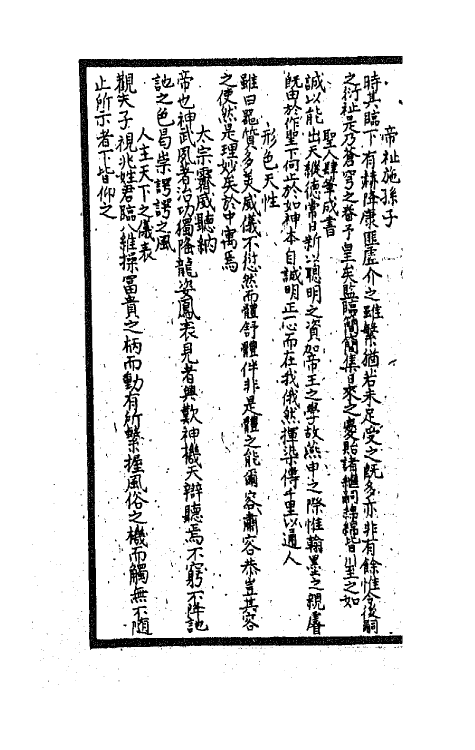 帝祉施孫子
時其臨下有赫降康匪虛介之雖繁猶若未足受之既多亦非有餘惟今後嗣
之衍祉是乃蒼穹之眷予皇矣監臨簡簡集日來之慶貽諸繼嗣綿綿皆川至之如
聖人肆筆成書
誠以能出天縱德常日新以聰明之資加帝王之學故燕申之際惟翰墨之親睿
既由於作聖下何止於如神本自誠明正一心而在我俄然揮染傳千里以通人
形色天性
雖曰器質多美威儀不愆然而體舒體伴非是體之能爾容肅容恭豈其容
之使然是理妙矣於中寓焉
太宗霽威聽納
帝也神武夙著治功獨隆龍姿鳳表見者興歎神機天辯聽焉不窮不阵訑
訑之色曷崇諤諤之風
人主天下之儀表
觀夫子視兆姓君臨八維操富貴之柄而動有所繫握風俗之機而觸無不隨
止所示者下皆仰之